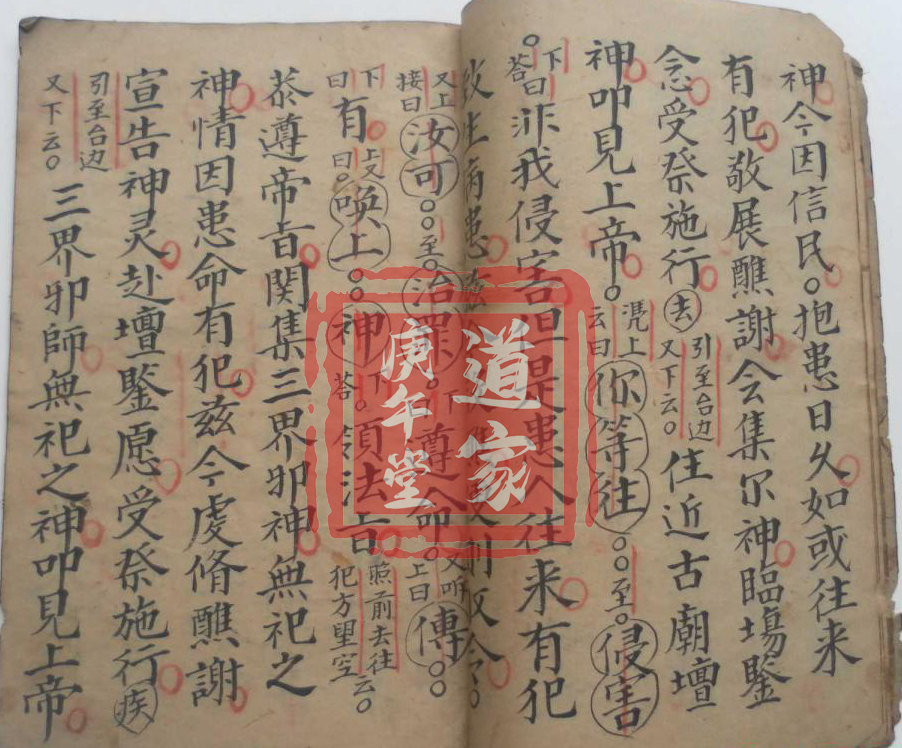 神今因信民。抱患日久如或往来
有犯敬展醮謝会集尔神臨塲鑒
念受祭施行去
引至台边
又下云。
住近古廟壇
神叩見上帝。
凭上
云曰
你等往。。至。侵害
下
答曰
非我侵害但是患人往来有犯
致生病患
又上
接曰
汝可。。至。治罪。
下
遵令。
又吩
上曰
傳。。。
下
曰
有。
上又
曰
唤上。。神。
下
答
領法旨
照前去往
犯方望空云。
恭遵帝旨関集三界邪神無祀之
神情因患命有犯兹今虔脩醮謝
宣告神灵赴壇鑒愿受祭施行疾
引至台边
又下云。
三界邪師無祀之神叩見上帝
道家
庚午堂